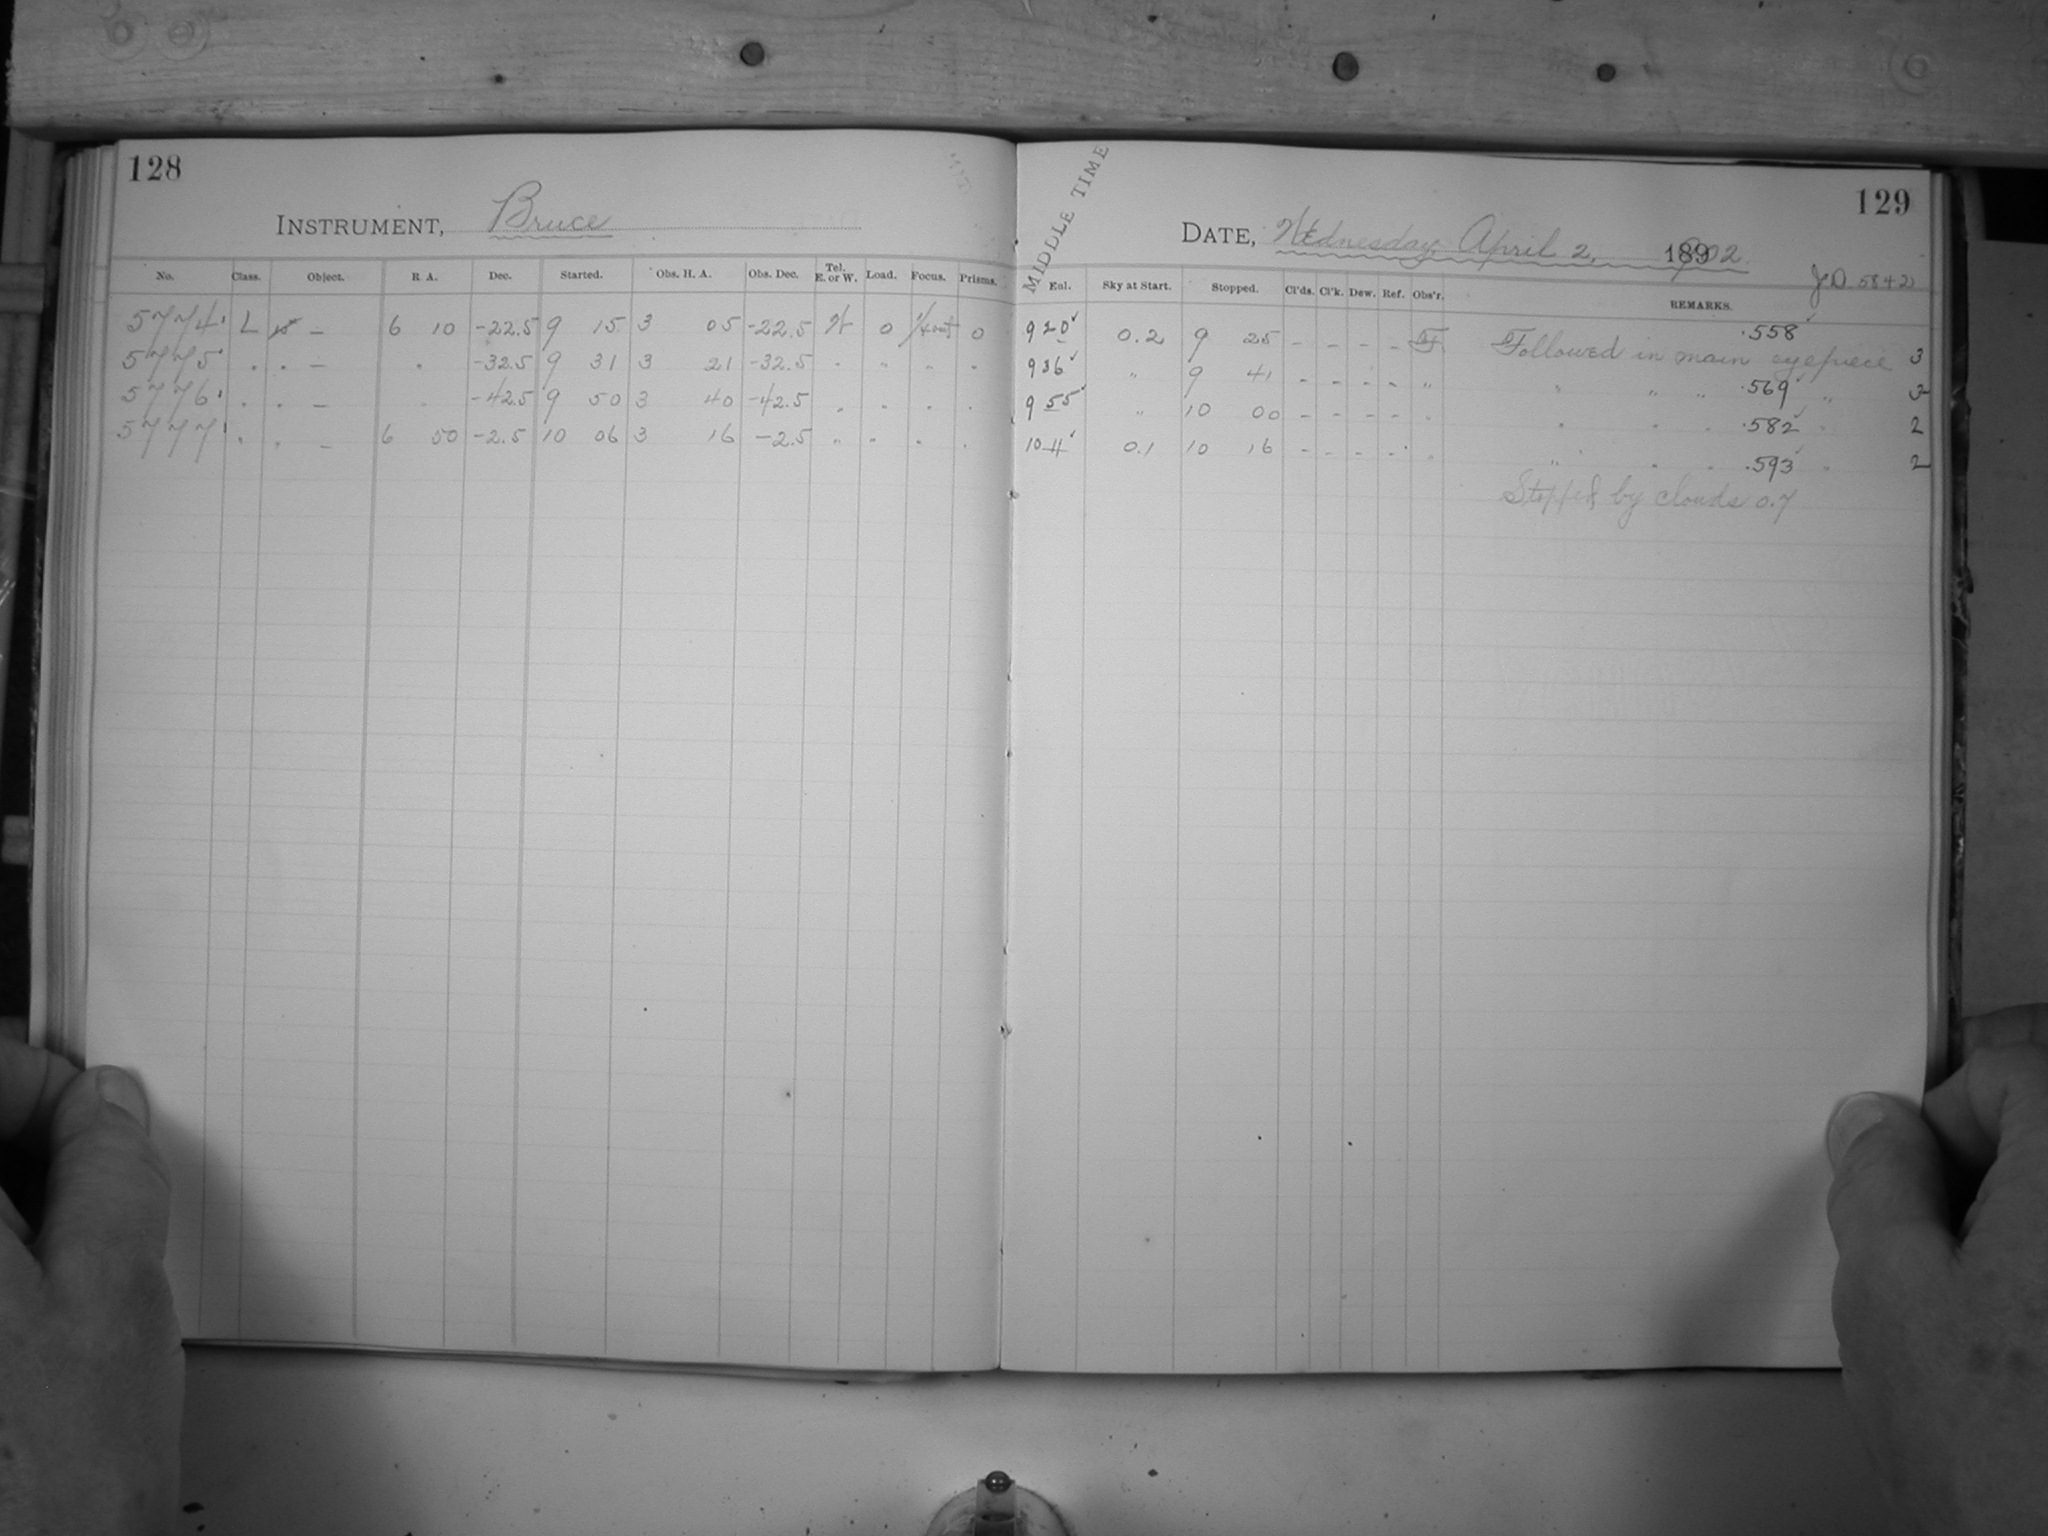 128
INSTRUMENT, Bruce
No. Class. Object. R. A. Dec. Started. Obs. H. A. Obs. Dec. Tel. E. or W. Load. Focus. Prisms.
5774 L - 6 10 -22.5 9 15 3 05 -22.5 W 0 0
5775 " " - " -32.5 9 31 3 21 -32.5 " " " "
5776 " " - " -42.5 9 50 3 40 -42.5 " " " "
5777 " " - 6 50 -2.5 10 06 3 16 -2.5 " " " "
129
MIDDLE TIME
DATE, Wednesday, April 2, 1902.
J.D. 5842
Eal. Sky at Start. Stopped. Cl'ds. Cl'k. Dew. Ref. Obs'r. REMARKS.
9 20 ✓ 0.2 9 25 - - - - .558 ✓
Followed in main eyepiece 3
9 36 ✓ " 9 41 - - - - " " " " .569 ✓ " 3
9 55 ✓ " 10 00 - - - - " " " " .582 ✓ " 2
10 11 ✓ 0.1 10 16 - - - - " " " " .593 ✓ " 2
Stopped by clouds 0.7